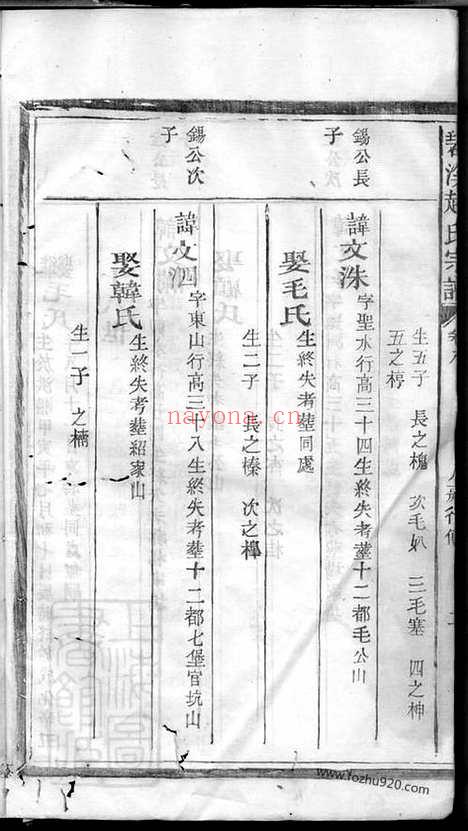 溪趙氏宗譜
生五子 長之槐 次毛 三毛塞 四之神
五之桲
錫公長子
諱文洙字聖水行高三十四生終失考塟十二都毛公山
娶毛氏生終失考塟同處
生二子 長之榛 次之樺
錫公次子
諱文泗字東山行高三十八生終失考塟十二都七堡官坑山
娶韓氏生終失考塟紹家山
生一子 之楠
nayona.cn
www.fozhu920.com